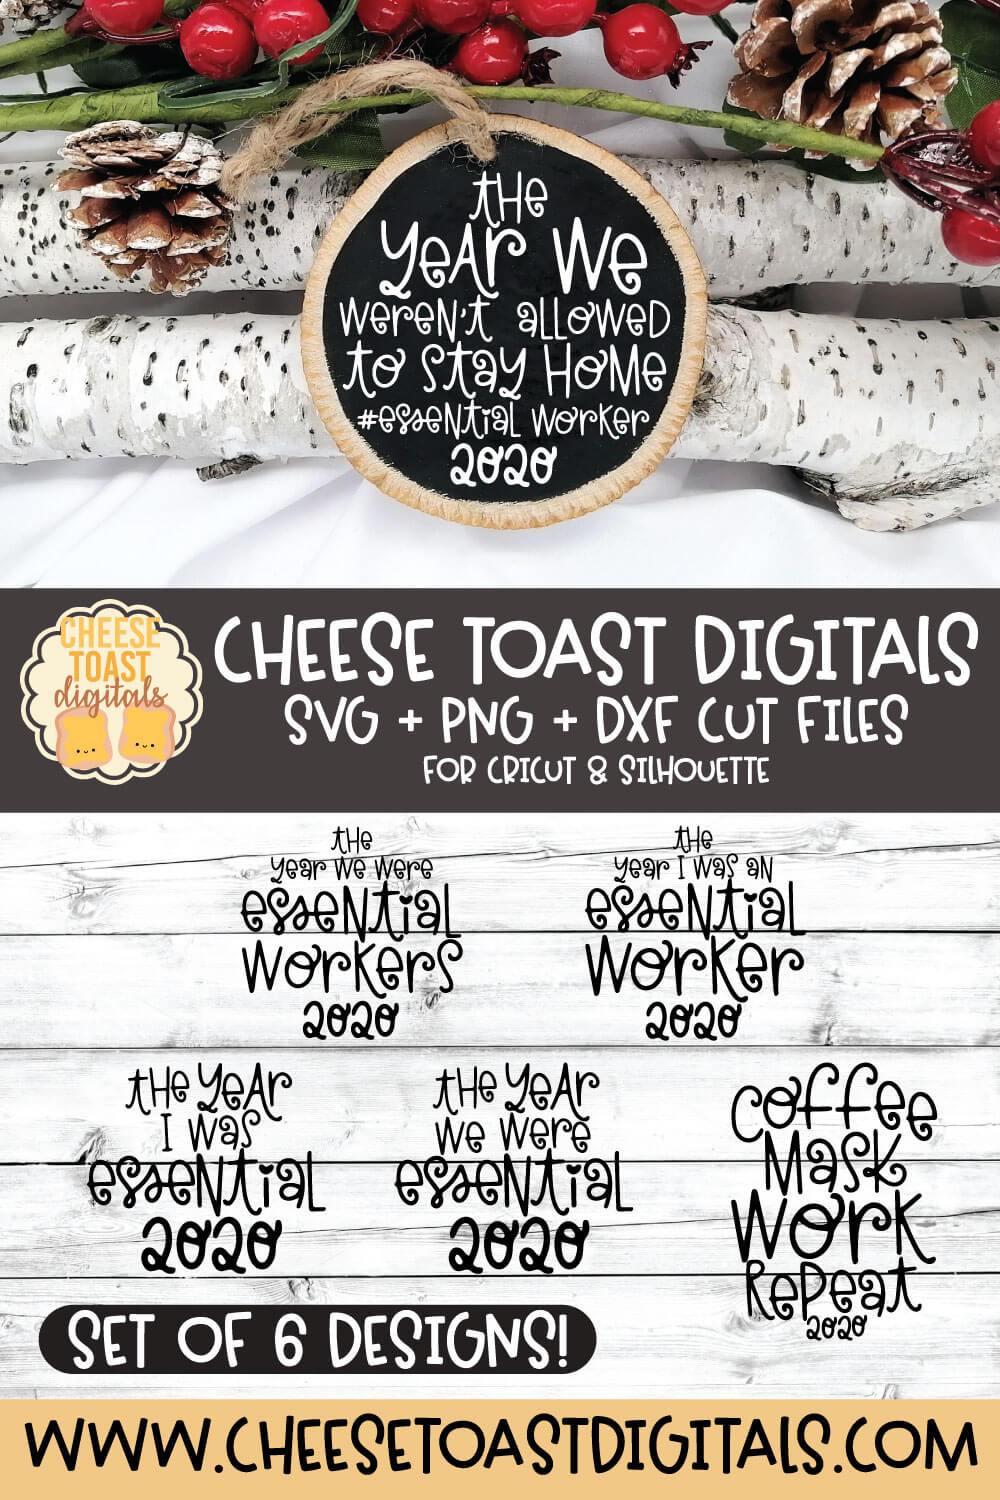 the
Year We
Weren't allowed
to Stay Home
#essential Worker
2020
CHEESE
TOAST
digitals
CHEESE TOAST DIGITALS
SVG + PNG + DXF CUT FILES
FOR CRICUT & SILHOUETTE
the
Year We Were
essential
Workers
2020
the
Year I Was an
essential
Worker
2020
the Year
I Was
essential
2020
the Year
We Were
essential
2020
Coffee
Mask
Work
Repeat
2020
SET OF 6 DESIGNS!
WWW.CHEESETOASTDIGITALS.COM